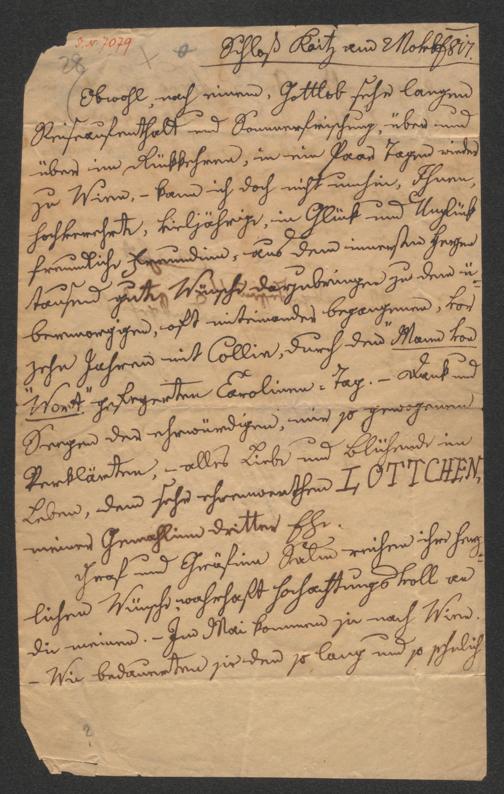 S.N. 7079
28
Schloß Raitz am 2 Novbr 817.
Obwohl, nach einem, Gottlob sehr langen
Reiseaufenthalt und Sommerfrischung, über und
über im Rückkehren, in ein Paar Tagen wieder
zu Wien, - kann ich doch nicht umhin, Ihnen,
hochverehrte, vieljährige, in Glück und Unglück
freundliche Freundinn, aus dem innersten Herzen
tausend gute Wünsche darzubringen zu dem ü-
bermorgigen, oft miteinander begangenen, vor
zehn Jahren mit Collin, durch den "Mann von
Wort" gefeyerten Carolinen-Tag. - Dank und
Seegen der ehrwürdigen, mir so gewogenen
Verklärten, - alles Liebe und Blühende im
Leben, dem sehr ehrenwerthen LOTTCHEN,
meiner Gemahlinn dritter Ehe.
Graf und Gräfinn Salm reihen ihre herz-
lichen Wünsche, wahrhaft hochachtungsvoll an
die meinen. - Im Mai kommen sie nach Wien.
- Wie bedauerten sie den so lang und so sehnlich
2